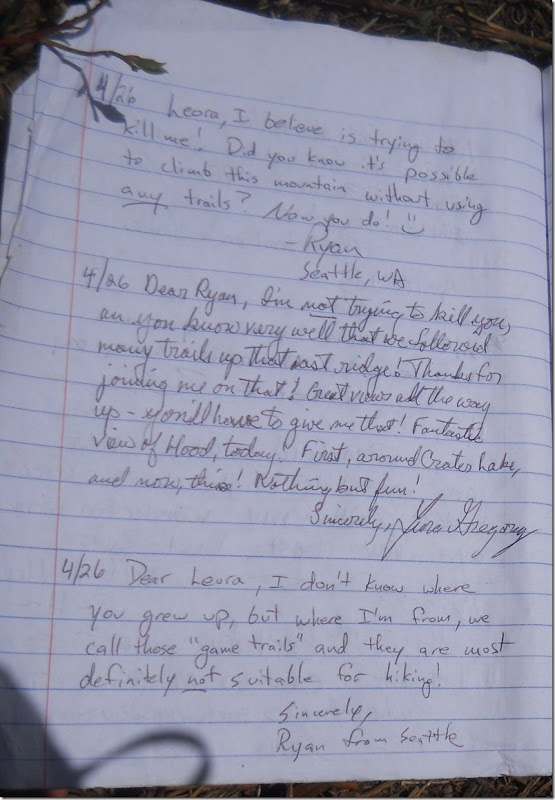 4/26 Leora, I believe is trying to
kill me! Did you know it's possible
to climb this mountain without using
any trails? Now you do! :)
- Ryan
Seattle, WA
4/26 Dear Ryan, I'm not trying to kill you,
as you know very well that we followed
many trails up that east ridge! Thanks for
joining me on that! Great views all the way
up - you'll have to give me that! Fantastic
view of Hood, today. First, around Crater Lake,
and now, this! Nothing but fun!
Sincerely, Leora Gregory
4/26 Dear Leora, I don't know where
you grew up, but where I'm from, we
call those "game trails" and they are most
definitely not suitable for hiking!
Sincerely,
Ryan from Seattle